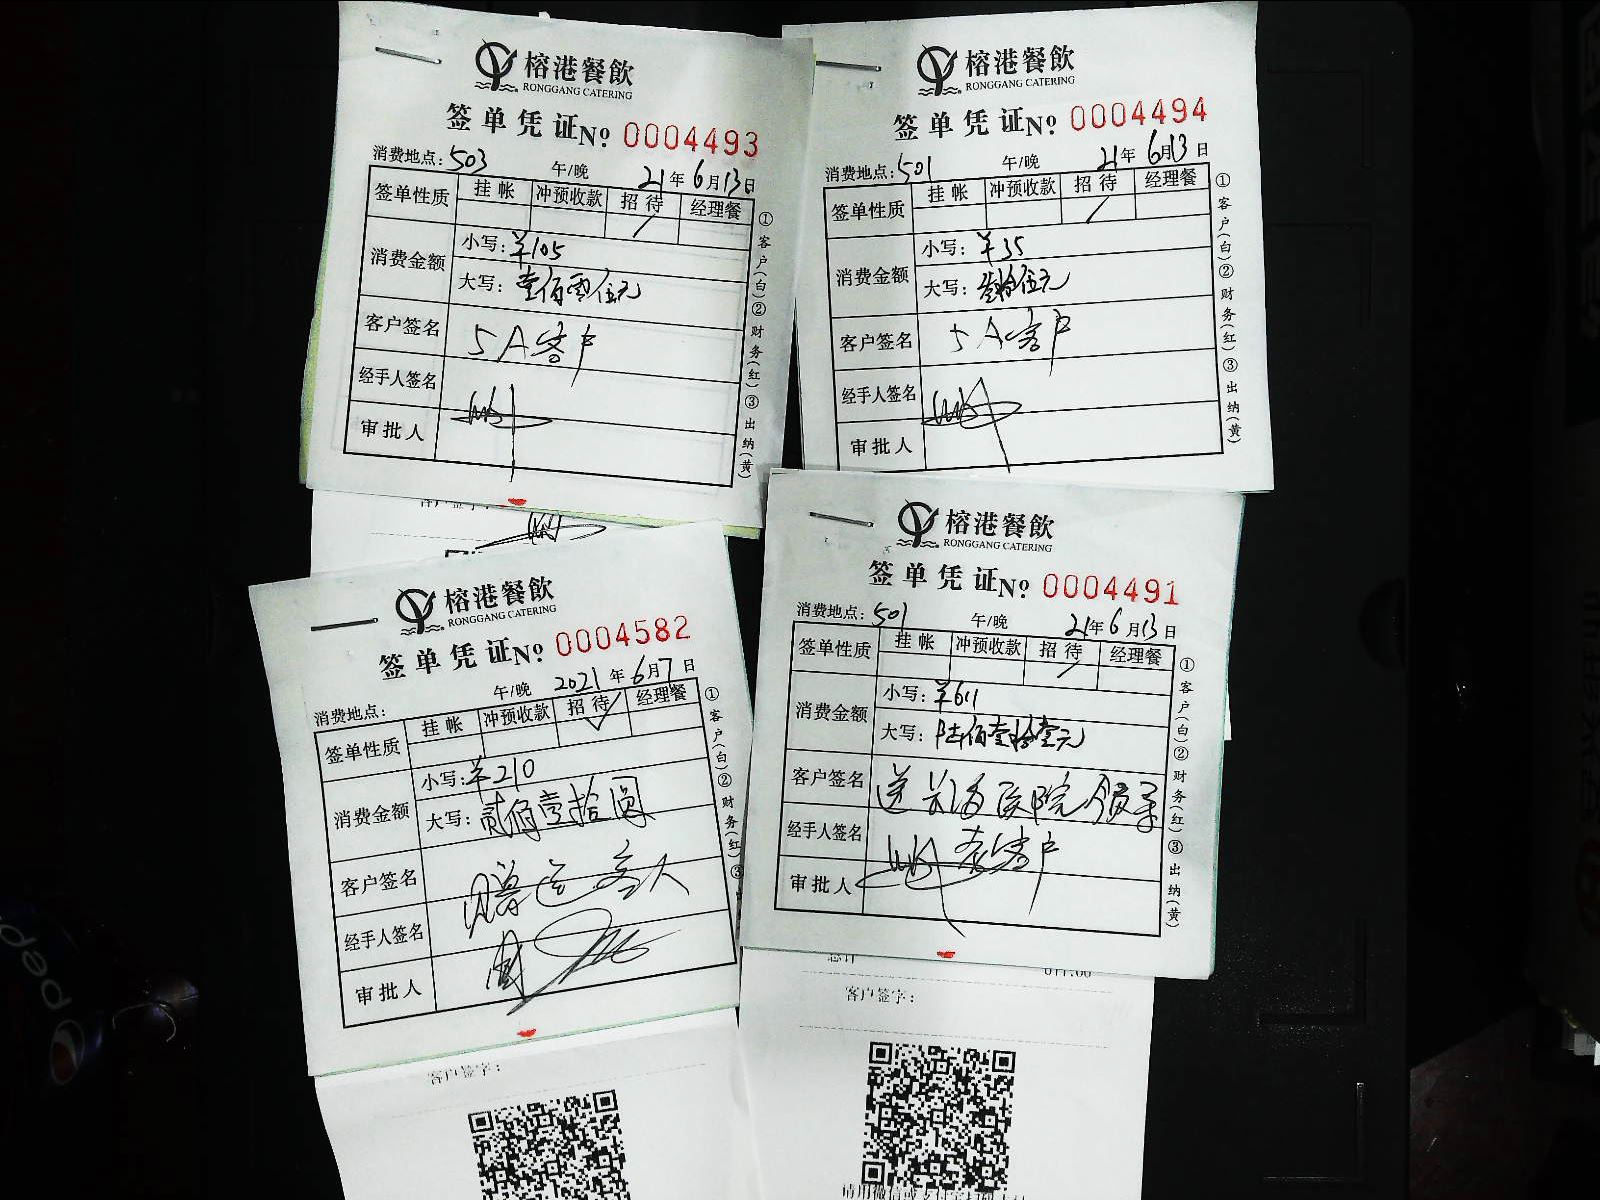 榕港餐飲
RONGGANG CATERING
签单凭证No 0004493
消费地点:503 午/晚 21年6月13日
签单性质 挂帐 冲预收款 招待 经理餐
消费金额 小写:¥105
大写:壹佰零伍元
客户签名 5A客户
经手人签名
审批人
①客户(白)②财务(红)③出纳(黄)
榕港餐飲
RONGGANG CATERING
签单凭证No 0004494
消费地点:501 午/晚 21年6月13日
签单性质 挂帐 冲预收款 招待 经理餐
消费金额 小写:¥35
大写:叁拾伍元
客户签名 5A客户
经手人签名
审批人
①客户(白)②财务(红)③出纳(黄)
客户签字:
榕港餐飲
RONGGANG CATERING
签单凭证No 0004582
消费地点: 午/晚 2021年6月7日
签单性质 挂帐 冲预收款 招待 经理餐
消费金额 小写:¥210
大写:贰佰壹拾圆
客户签名 赠送客人
经手人签名
审批人
①客户(白)②财务(红)③
客户签字:
榕港餐飲
RONGGANG CATERING
签单凭证No 0004491
消费地点:501 午/晚 21年6月13日
签单性质 挂帐 冲预收款 招待 经理餐
消费金额 小写:¥611
大写:陆佰壹拾壹元
客户签名 送长海医院
经手人签名 客户
审批人
①客户(白)②财务(红)③出纳(黄)
总计 611.00
客户签字: